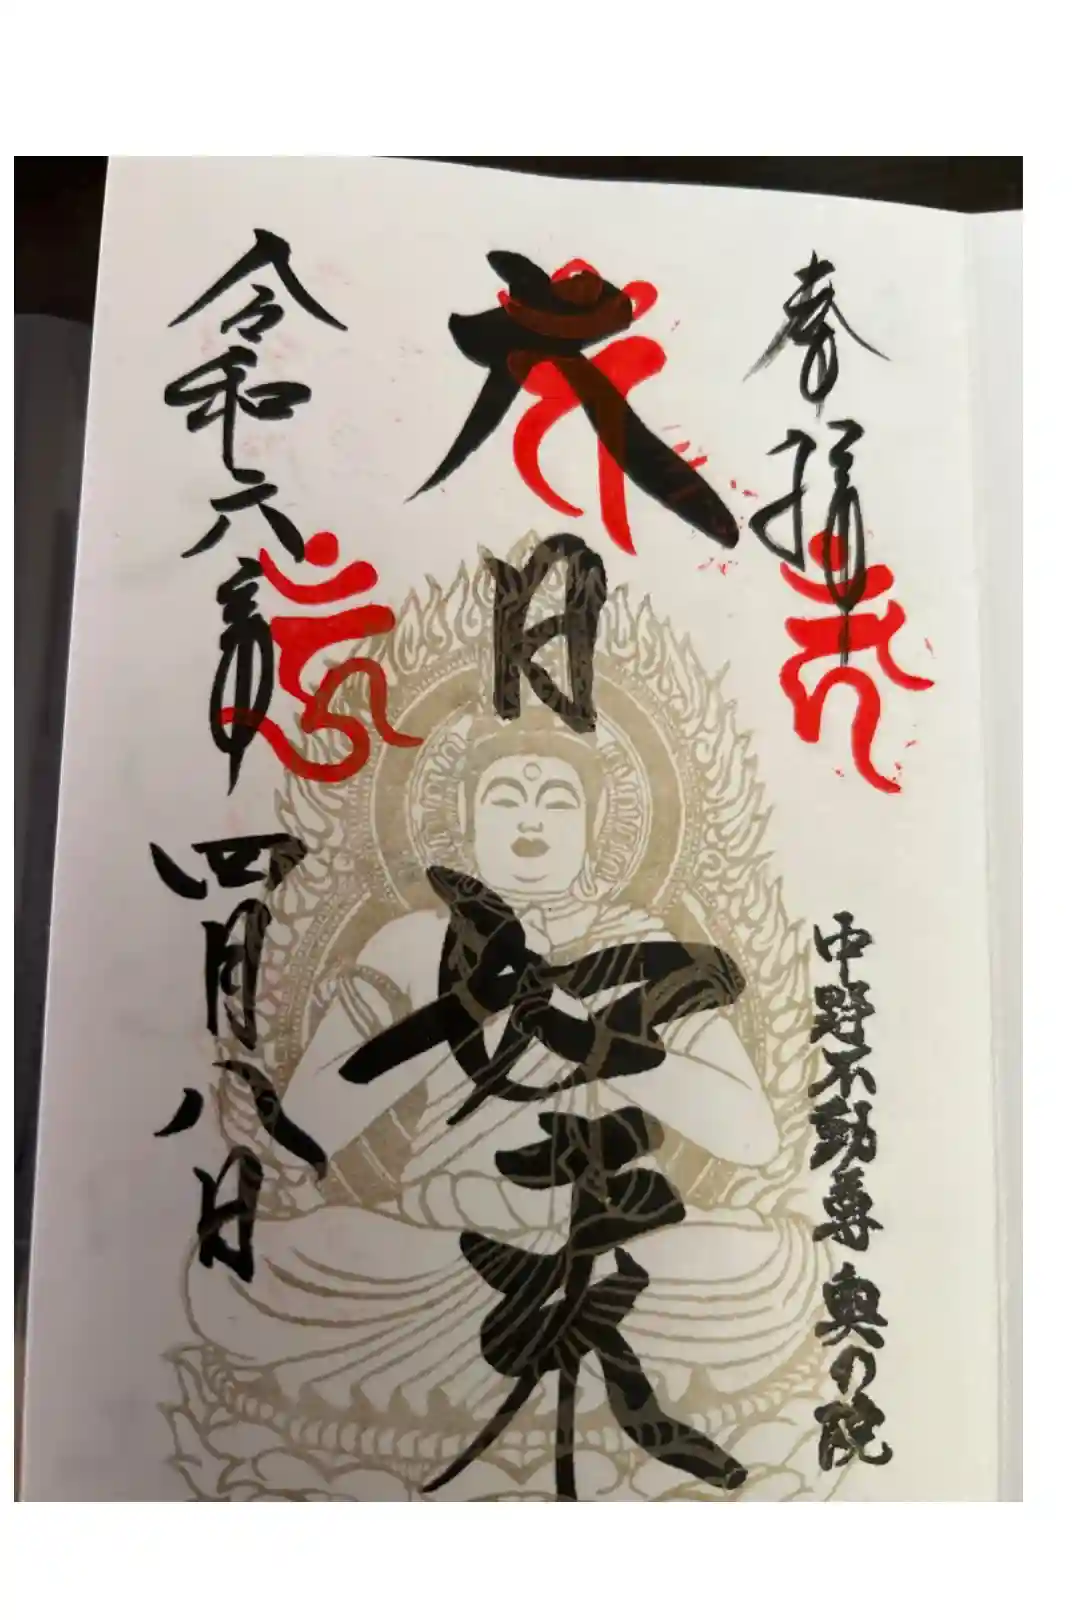 奉拝
中野不動尊 奥の院
大日如来
令和六年
四月八日